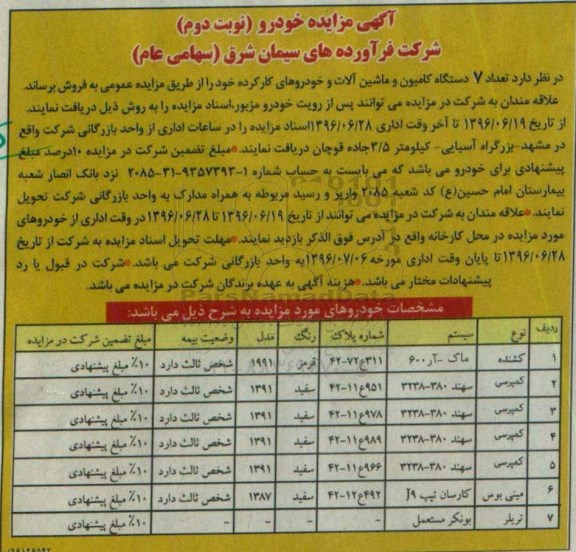 آگهی مزایده خودرو (نوبت دوم)
شرکت فرآورده های سیمان شرق (سهامی عام)
در نظر دارد تعداد ۷ دستگاه کامیون و ماشین آلات و خودروهای کارکرده خود را از طریق مزایده عمومی به فروش برساند.
علاقه مندان به شرکت در مزایده می توانند پس از رویت خودرو مزبور،اسناد مزایده را به روش ذیل دریافت نمایند.
از تاریخ ۱۳۹۶/۰۶/۱۹ تا آخر وقت اداری ۱۳۹۶/۰۶/۲۸اسناد مزایده را در ساعات اداری از واحد بازرگانی شرکت واقع
در مشهد-بزرگراه آسیایی- کیلومتر ۳/۵جاده قوچان دریافت نمایند.●مبلغ تضمین شرکت در مزایده ۱۰درصد مبلغ
پیشنهادی برای خودرو می باشد که می بایست به حساب شماره ۱-۹۳۵۷۳۹۳-۳۱-۲۰۸۵ نزد بانک انصار شعبه
بیمارستان امام حسین(ع) کد شعبه ۲۰۸۵ واریز و رسید مربوطه به همراه مدارک به واحد بازرگانی شرکت تحویل
نمایند.●علاقه مندان به شرکت در مزایده می توانند از تاریخ ۱۳۹۶/۰۶/۱۹ تا ۱۳۹۶/۰۶/۲۸در وقت اداری از خودروهای
مورد مزایده در محل کارخانه واقع در آدرس فوق الذکر بازدید نمایند.●مهلت تحویل اسناد مزایده به شرکت از تاریخ
۱۳۹۶/۰۶/۲۸تا پایان وقت اداری مورخه ۱۳۹۶/۰۷/۰۶به واحد بازرگانی شرکت می باشد.●شرکت در قبول یا رد
پیشنهادات مختار می باشد.●هزینه آگهی به عهده برندگان شرکت در مزایده می باشد.
ParsNamadData
مشخصات خودروهای مورد مزایده به شرح ذیل می باشد:
ردیف نوع سیستم شماره پلاک رنگ مدل وضعیت بیمه مبلغ تضمین شرکت در مزایده
۱ کشنده ماک -آر۶۰۰ ۳۱۱ع۷۲-۴۲ قرمز ۱۹۹۱ شخص ثالث دارد ۱۰٪ مبلغ پیشنهادی
۲ کمپرسی سهند ۳۸۰-۳۲۳۸ ۹۵۱ع۱۱-۴۲ سفید ۱۳۹۱ شخص ثالث دارد ۱۰٪ مبلغ پیشنهادی
۳ کمپرسی سهند ۳۸۰-۳۲۳۸ ۹۷۸ع۱۱-۴۲ سفید ۱۳۹۱ شخص ثالث دارد ۱۰٪ مبلغ پیشنهادی
۴ کمپرسی سهند ۳۸۰-۳۲۳۸ ۹۸۹ع۱۱-۴۲ سفید ۱۳۹۱ شخص ثالث دارد ۱۰٪ مبلغ پیشنهادی
۵ کمپرسی سهند ۳۸۰-۳۲۳۸ ۹۶۶ع۱۱-۴۲ سفید ۱۳۹۱ شخص ثالث دارد ۱۰٪ مبلغ پیشنهادی
۶ مینی بوس کارسان تیپ J۹ ۴۹۲ع۱۲-۴۲ سفید ۱۳۸۷ شخص ثالث دارد ۱۰٪ مبلغ پیشنهادی
۷ تریلر بونکر مستعمل - - - - ۱۰٪ مبلغ پیشنهادی